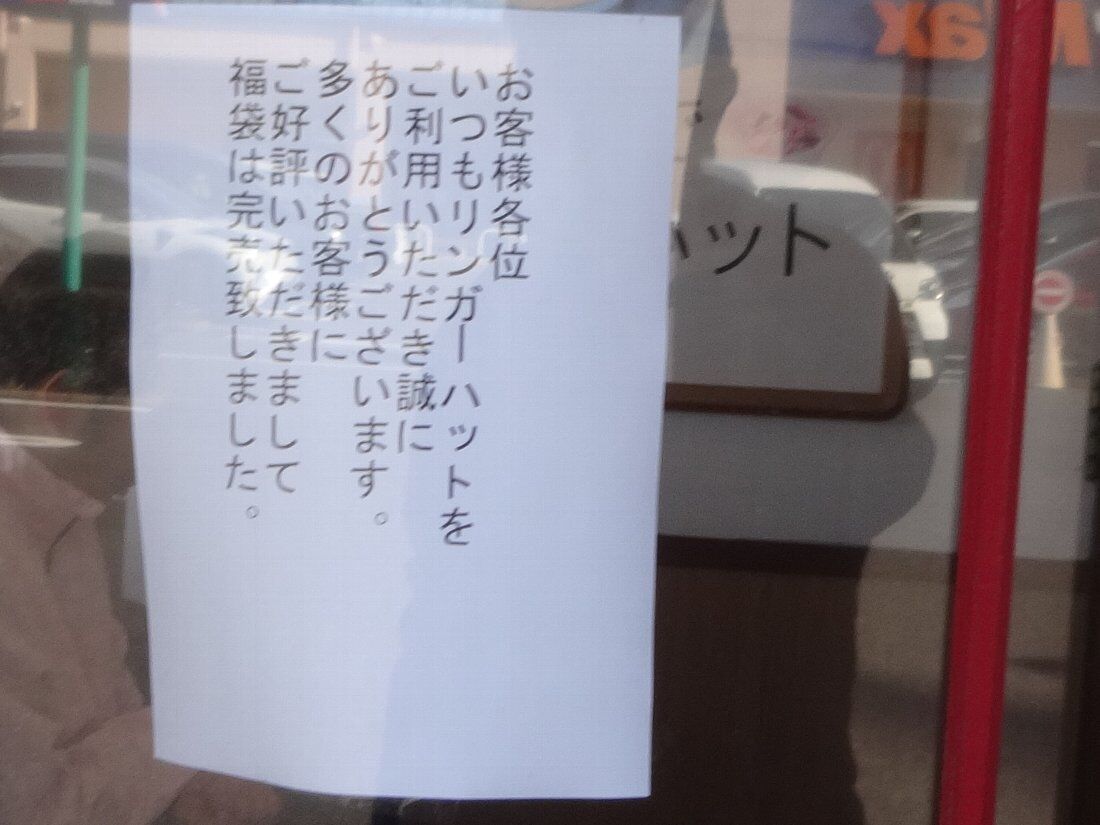 お客様各位
いつもリンガーハットを
ご利用いただき誠に
ありがとうございます。
多くのお客様に
ご好評いただきまして
福袋は完売致しました。
ハット
Max